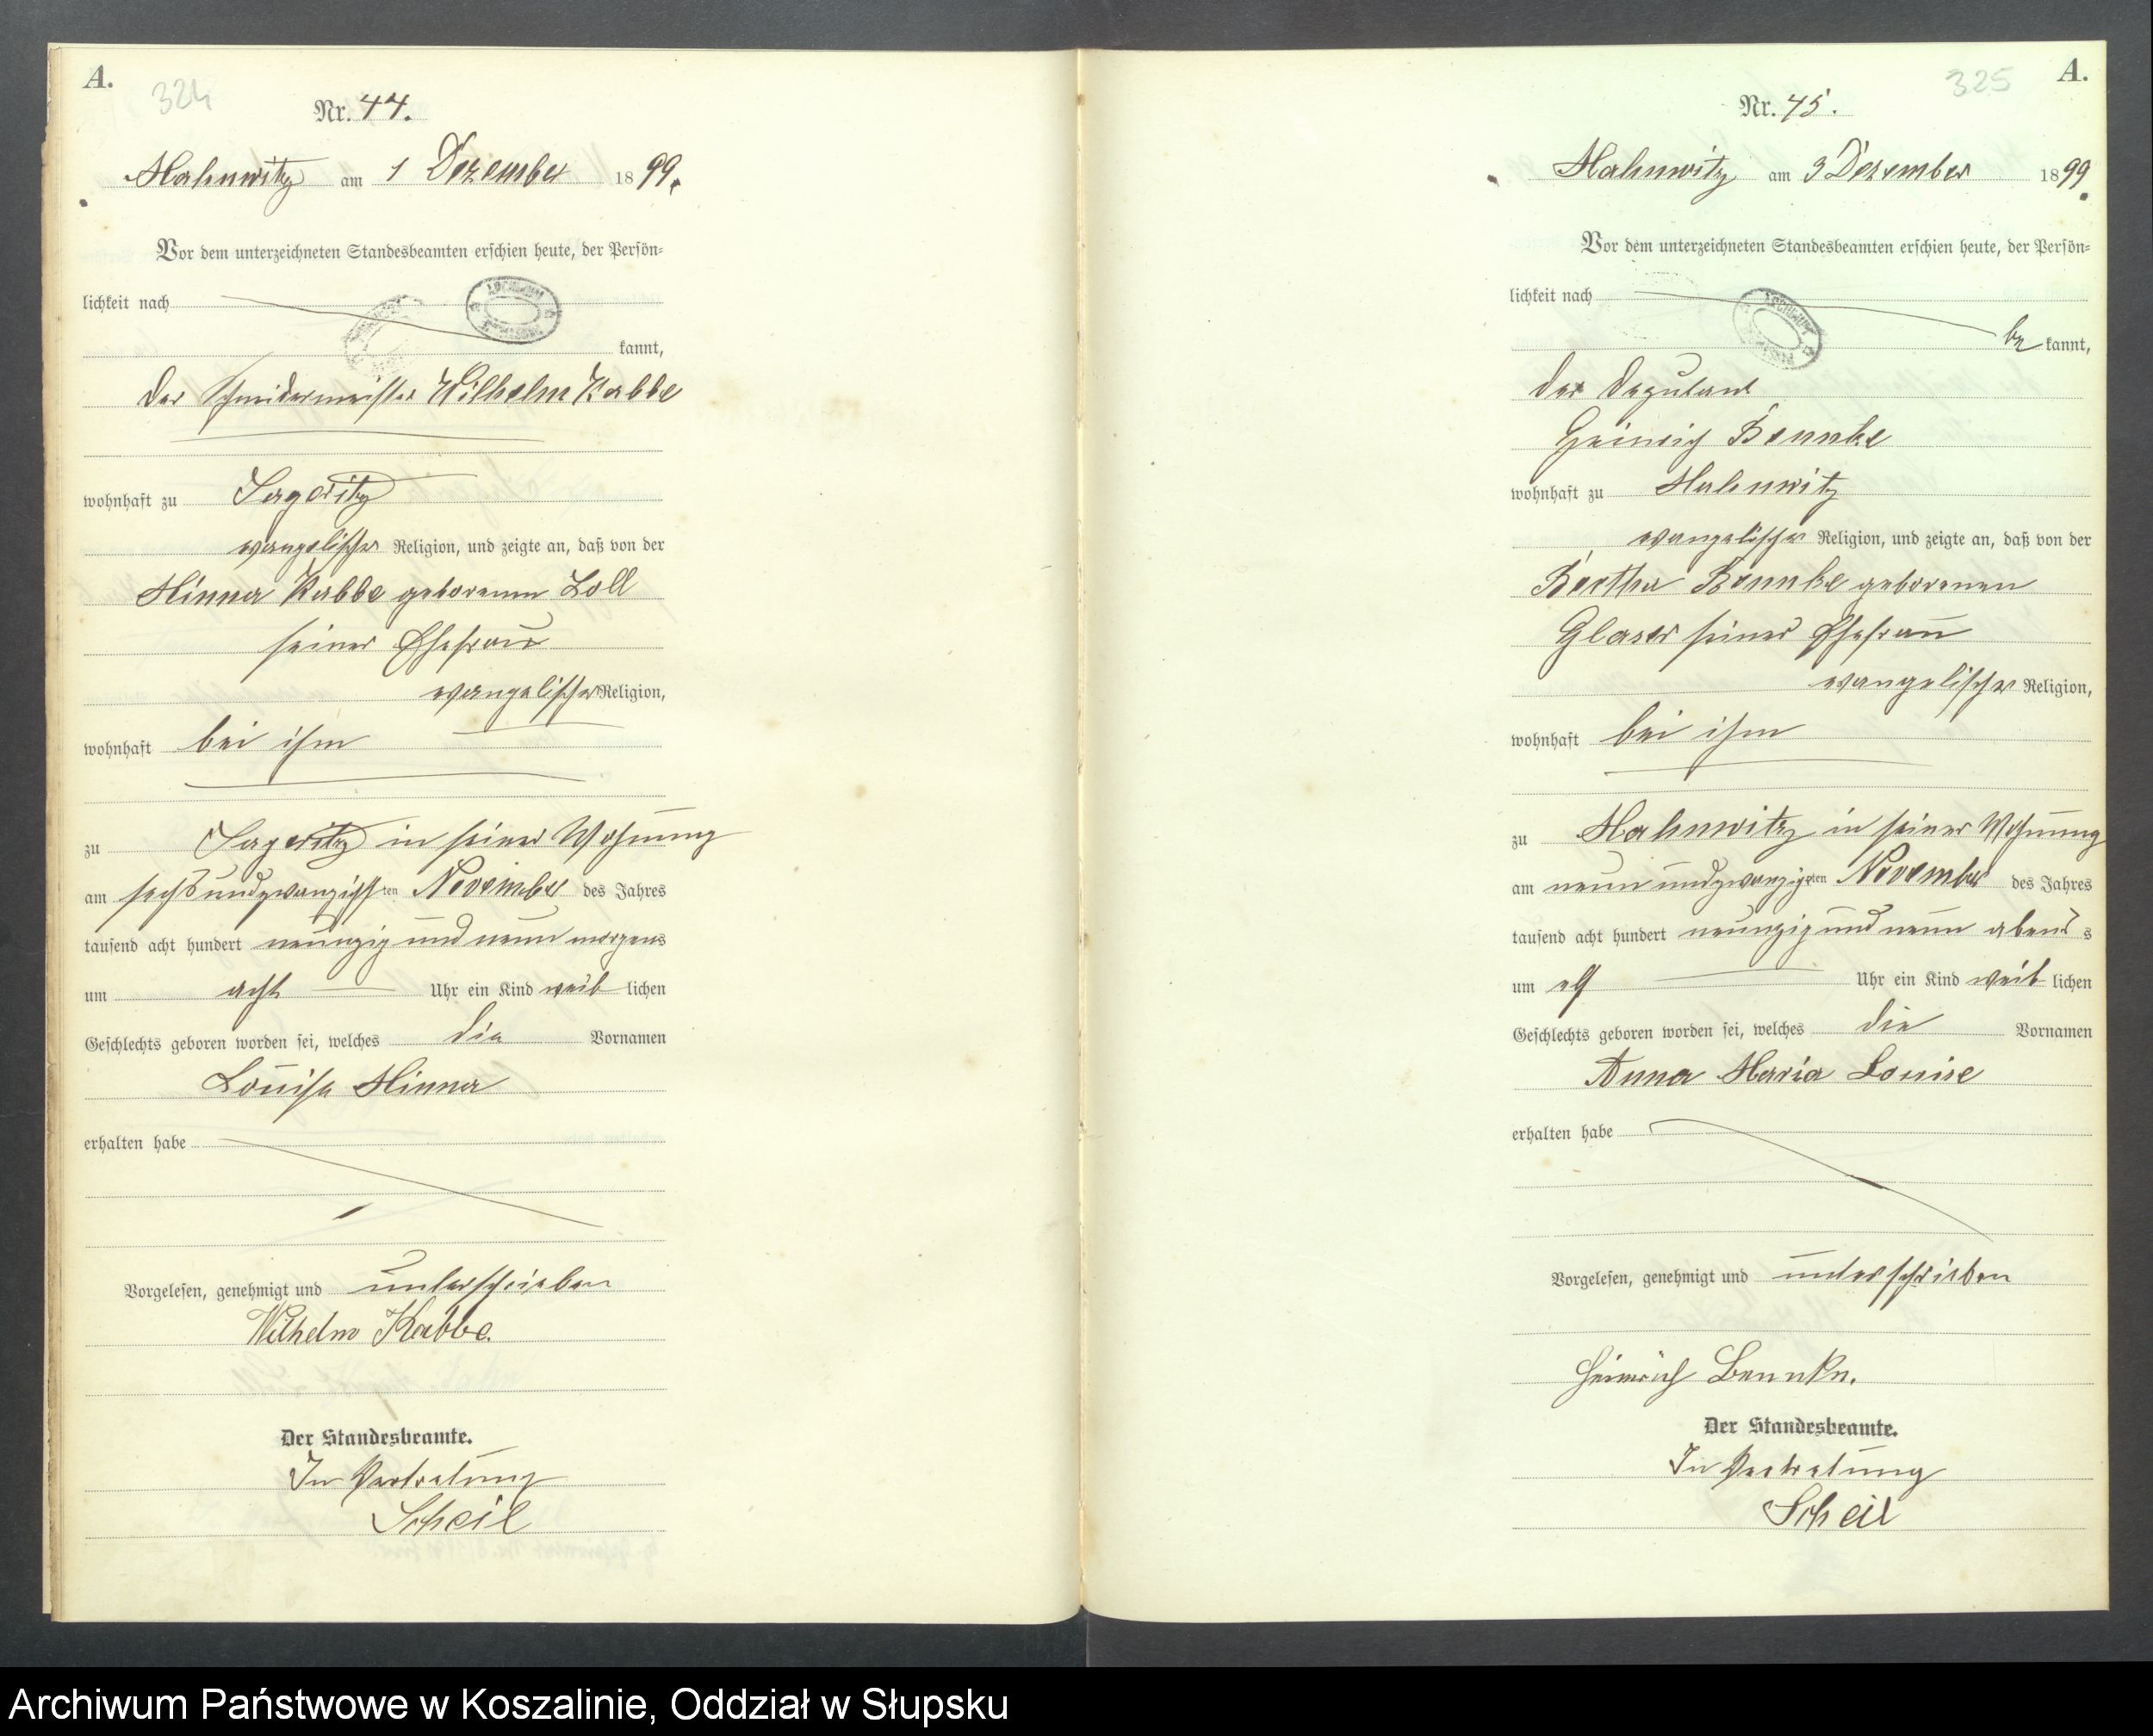 A.
324
Nr. 44.
Mahnwitz am 1 Dezember 1899.
Vor dem unterzeichneten Standesbeamten erschien heute, der Persön-
lichkeit nach
kannt,
der Schneidermeister Wilhelm Kabbe
wohnhaft zu Sageritz
evangelischer Religion, und zeigte an, daß von der
Minna Kabbe geborenen Zoll
seiner Ehefrau
evangelischer Religion,
wohnhaft bei ihm
zu Sageritz in seiner Wohnung
am sechsundzwanzigsten November des Jahres
tausend acht hundert neunzig und neun morgens
um acht Uhr ein Kind weiblichen
Geschlechts geboren worden sei, welches die Vornamen
Louise Minna
erhalten habe
Vorgelesen, genehmigt und unterschrieben
Wilhelm Kabbe.
Der Standesbeamte.
In Vertretung
Scheil
325
A.
Nr. 45.
Mahnwitz am 3 Dezember 1899.
Vor dem unterzeichneten Standesbeamten erschien heute, der Persön-
lichkeit nach
be kannt,
der Deputant
Heinrich Bennke
wohnhaft zu Mahnwitz
evangelischer Religion, und zeigte an, daß von der
Bertha Bennke geborenen
Glaser seiner Ehefrau
evangelischer Religion,
wohnhaft bei ihm
zu Mahnwitz in seiner Wohnung
am neunundzwanzigsten November des Jahres
tausend acht hundert neunzig und neun abends
um elf Uhr ein Kind weiblichen
Geschlechts geboren worden sei, welches die Vornamen
Anna Maria Louise
erhalten habe
Vorgelesen, genehmigt und unterschrieben
Heinrich Bennke.
Der Standesbeamte.
In Vertretung
Scheil
Archiwum Państwowe w Koszalinie, Oddział w Słupsku